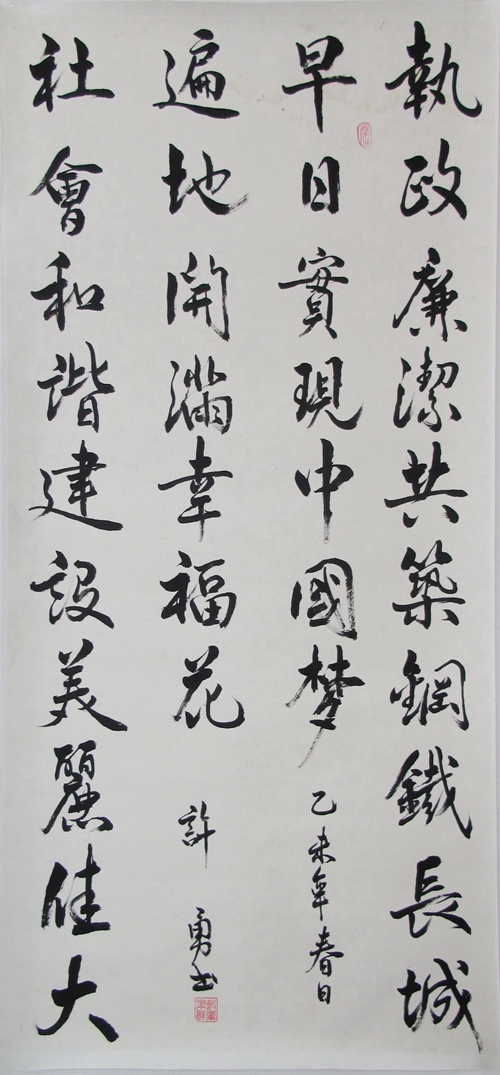 執政廉潔共築鋼鐵長城
早日實現中國梦
乙未年春日
社會和諧建設美麗佳大
遍地開滿幸福花
許勇书